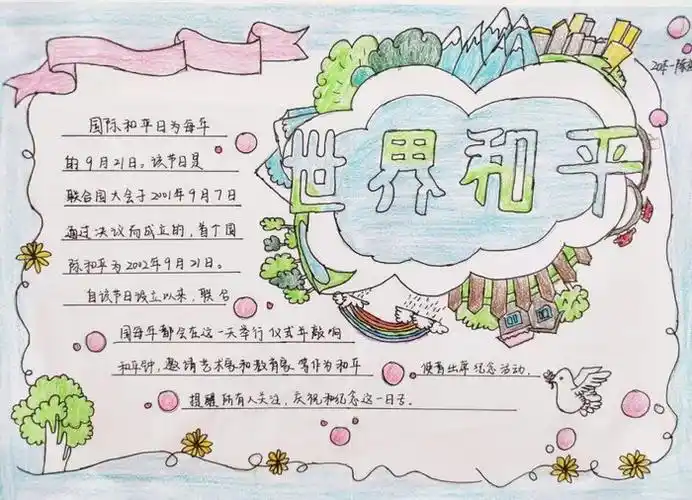 世界和平
国际和平日为每年
的9月21日。该节日是
联合国大会于2001年9月7日
通过决议而成立的,首个国
际和平为2002年9月21日。
自该节日设立以来,联合
国每年都会在这一天举行仪式并敲响
和平钟,邀请艺术家和教育家等作为和平
使者出席纪念活动,
提醒所有人关注,庆祝和纪念这一日子。